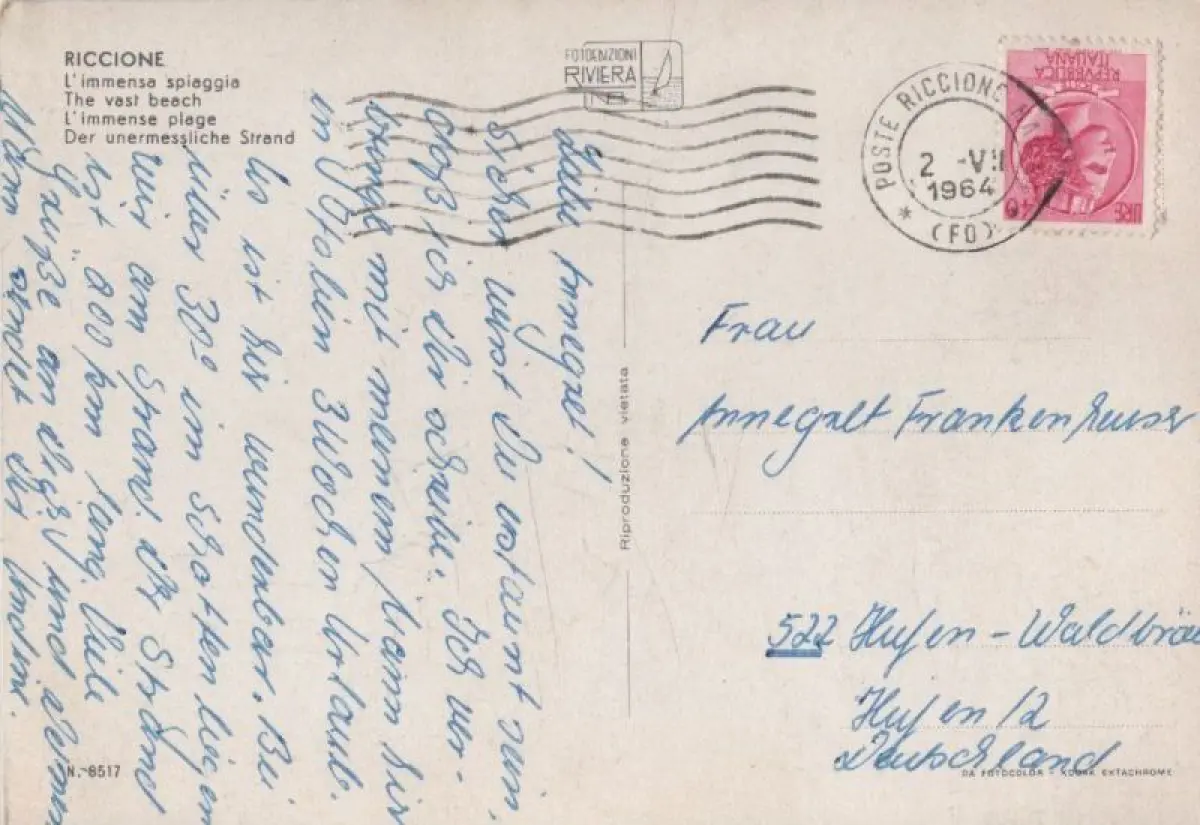 RICCIONE
L'immensa spiaggia
The vast beach
L'immense plage
Der unermessliche Strand
FOTOENZIONI
RIVIERA
POSTE RICCIONE
2 -VII
1964
(FO)
REPVBBLICA
ITALIANA
LIRE 40
Liebe Annegret!
Sicher wirst Du erstaunt sein,
daß ich dir schreibe. Ich ver-
bringe mit meinem Mann hier
in Italien 3 Wochen Urlaub.
Es ist hier wunderbar. Bei
über 30° im Schatten liegen
wir am Strand. Der Strand
ist 200 km lang. Viele
Grüße an dich und Deinen
Mann sendet dir
Riproduzione vietata
Frau
Annegret Frankenheuser
522 Hufen - Waldbröl
Hufen 12
Deutschland
N. 8517
DA FOTOCOLOR - KODAK EKTACHROME